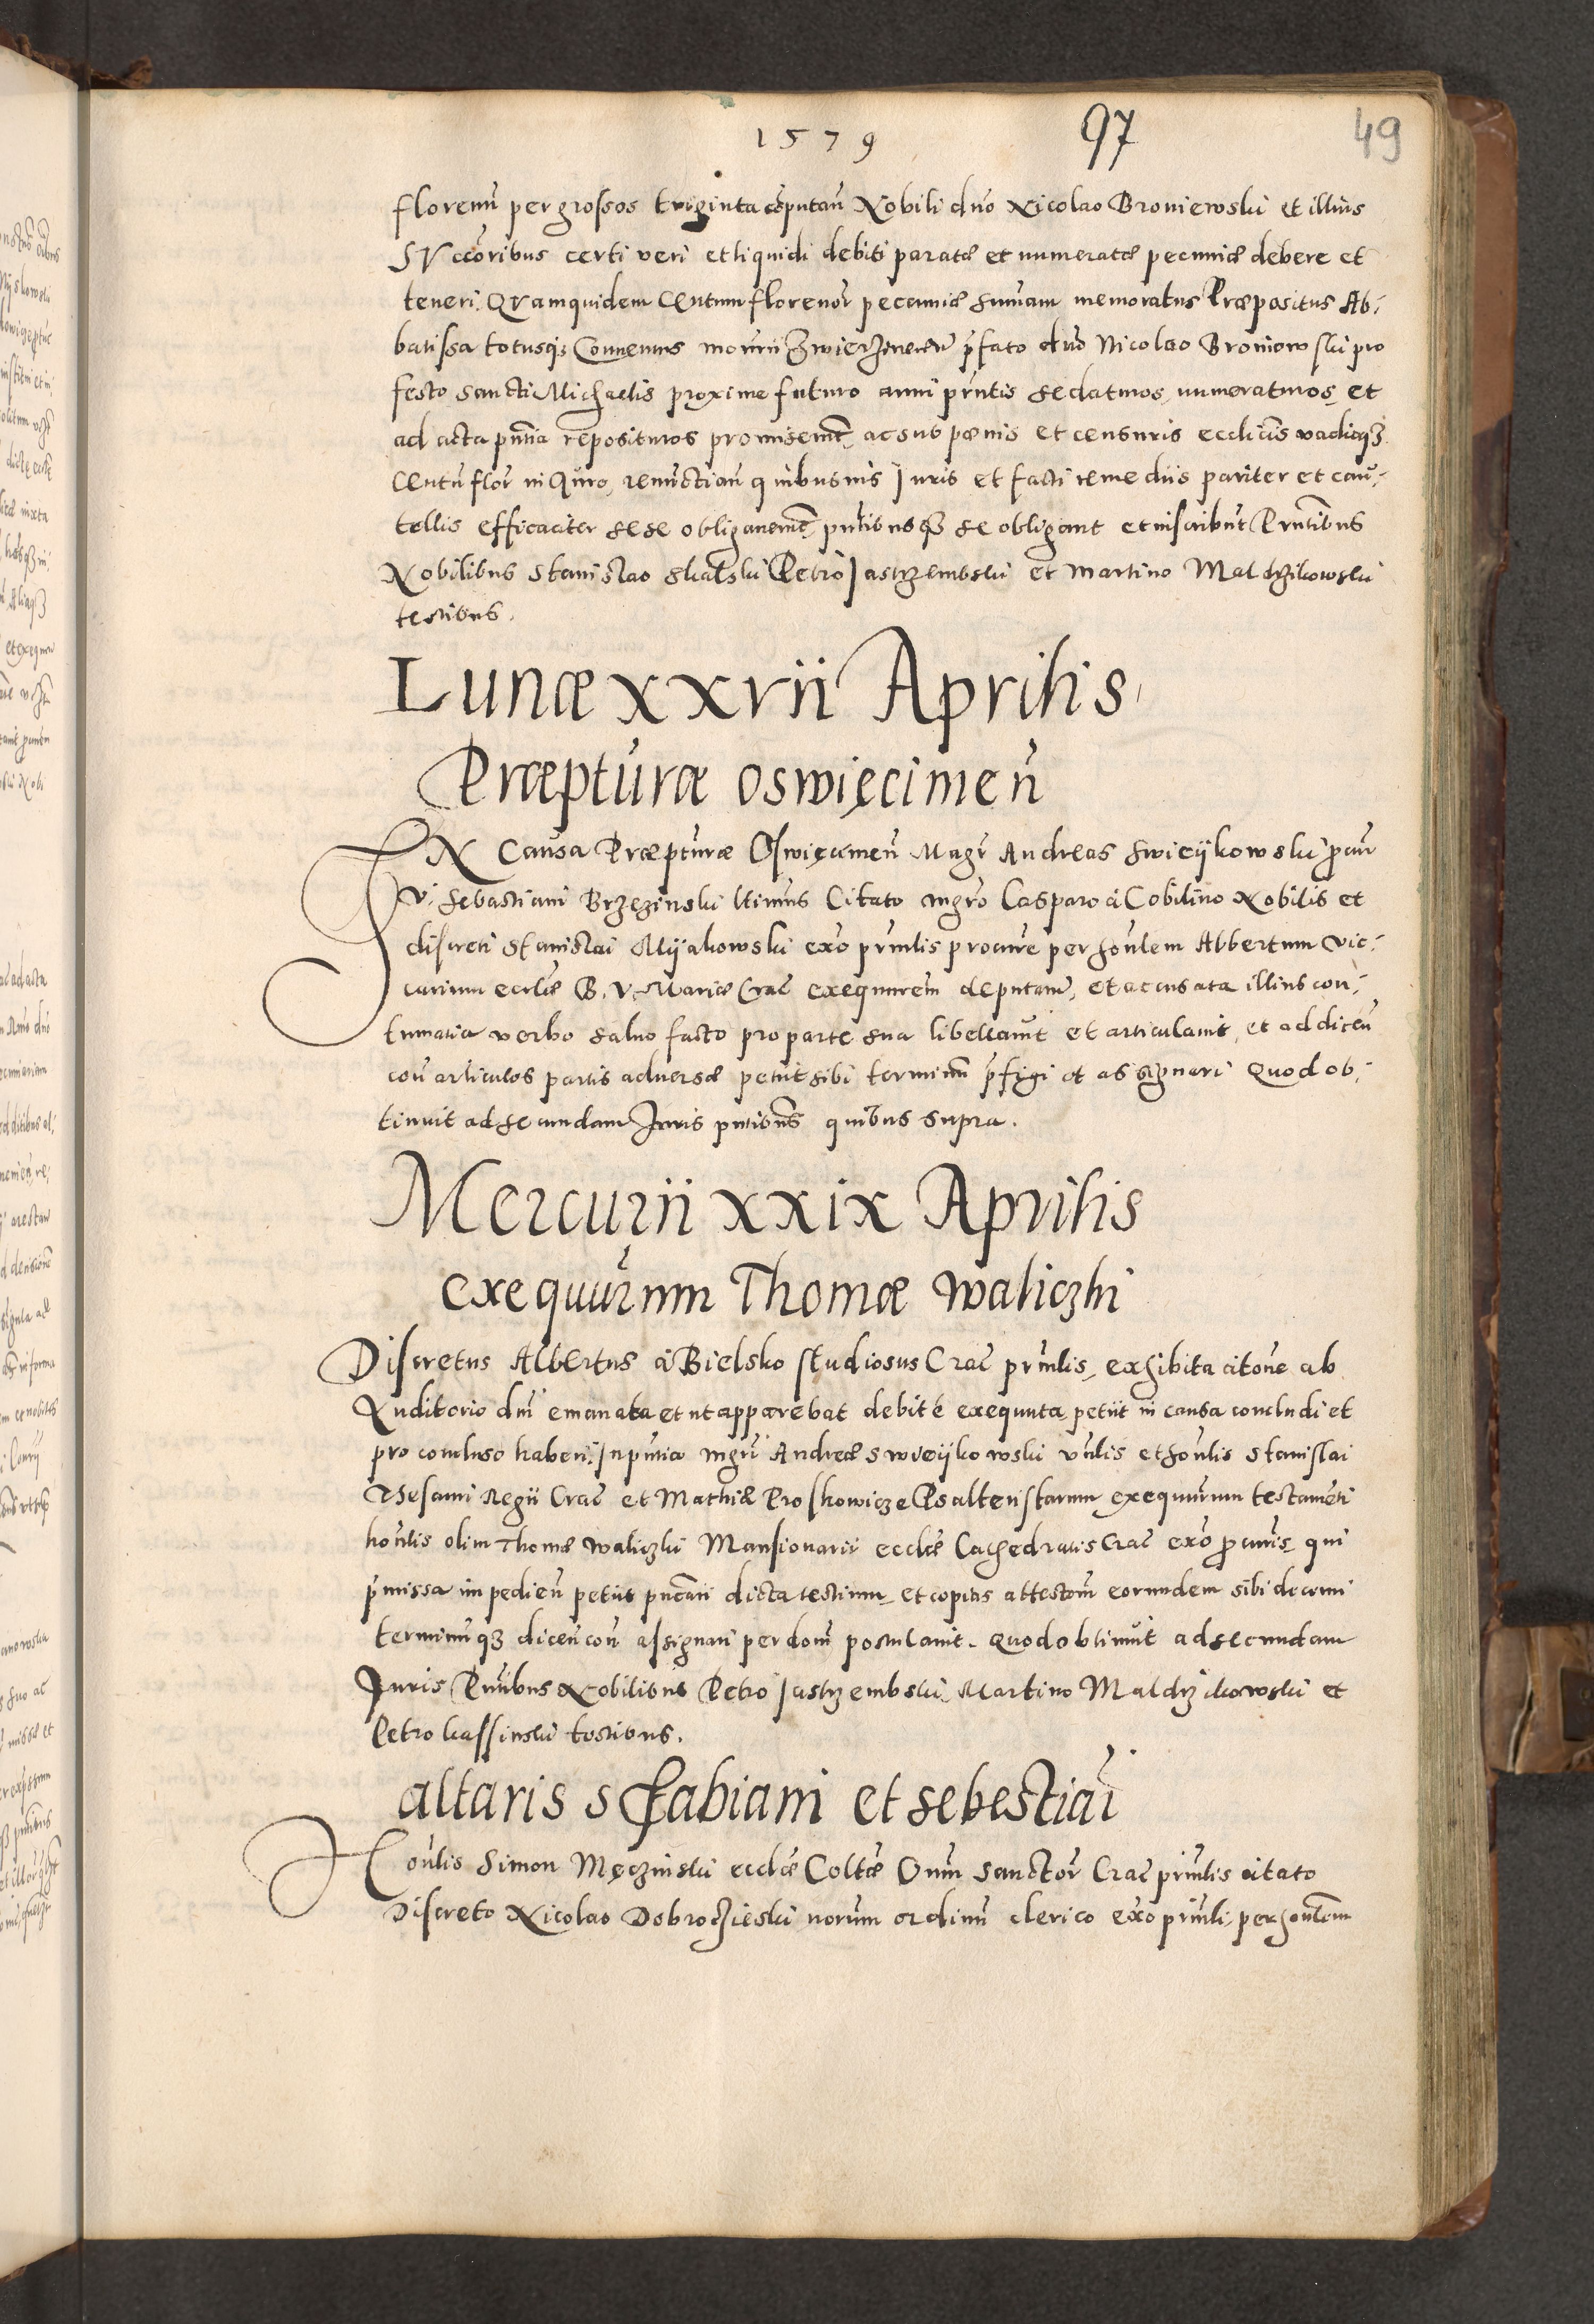 1579 97 49
florenũ per grossos triginta cõputan̄ Nobili dno Nicolao Broniewski et illius
SVccõribus certi veri et liquidi debiti paratæ et numeratæ pecuniæ debere et
teneri. QVamquidem Centum florenor pecuniæ summam memoratus Præpositus Ab-
batissa totusq3 Conuentus mon̄rii Zwierzinecen̄ p̄fato dno Nicolao Broniowski pro
festo sancti Michaelis proxime futuro anni pn̄tis se daturos numeraturos et
ad acta pn̄tia reposituros promiserunt, ac sub pænis et censuris ecclicis vadioq3
Centũ flor
renũctian̄ quibusuis Juris et facti remediis pariter et cau-
tellis efficaciter sese obligauerũt, pn̄tibusq3 se obligant et inscribũt Pn̄tibus
Nobilibus Stanislao Skalski Petro Jastrzembski et Martino Maldrzikowski
testibus.
Lunæ xxvii Aprilis
Præpturæ oswięcimen̄
IN Causa Præpturæ Oswięcimen̄ Magr Andreas Swieijkowski p̱cur
V. Sebastiani Brzezinski
Citato mgro Casparo á Cobilino Nobilis et
discreti Stanislai Mijakowski exõ prñlis procure per hon̄lem Albertum vic-
carium ecclæ B. V. Mariæ Crac̄ exequurem deputatum, et accusata illius con-
tumatia verbo saluo facto pro parte sua libellauit et articulauit, et ad dicen̄
con̄ articulos partis aduersæ petiit sibi terminũ p̄figi et assignari Quod ob-
tinuit ad secundam Juris pn̄tibus quibus supra.
Mercurii xxix Aprilis
exequurum Thomæ Waliczki
Discretus Albertus á Bielsko studiosus Crac̄ prñlis, exhibita citone ab
Auditorio dni emanata et ut apparebat debitè exequuta petiit in causa concludi et
pro concluso haberi. In pn̄tia mgri Andreæ Swieijkowski vn̄lis et hon̄lis Stanislai
Regii Crac̄ et Mathiæ Proskowicze Psalteristarum exequurum testamẽti
hon̄lis olim Thomæ Waliczki Mansionarii ecclæ Cathedralis Crac̄ exõ p̱curis, qui
p̄missa impedien̄ petiit
dicta testium, et copias attestom̄ eorumdem sibi decerni
terminũq3 dicen̄ con̄ assignari per dom̄ postulauit. Quod obtinuit ad secundam
Juris Pn̄tibus Nobilibus Petro Jastrzembski, Martino Maldrzikowski et
Petro Kassinski testibus.
altaris S Fabiani et Sebestiai
Hon̄lis Simon Męczinski ecclæ Coltæ Oñm Sanctor Crac̄ prñlis citato
Discreto Nicolao Dobroczieski norum ordinũ clerico exõ prñli, per hon̄lem